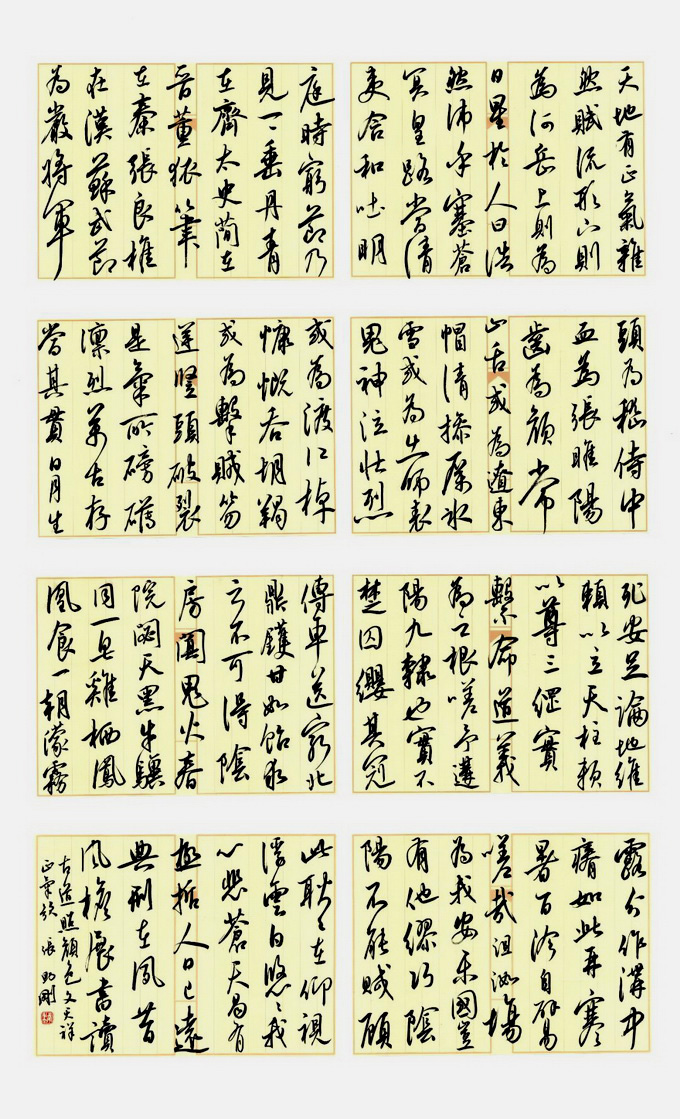 天地有正氣雜
然賦流形下則
為河岳上則為
日星於人曰浩
然沛乎塞蒼
冥皇路當清
夷含和吐明
庭時窮節乃
見一一垂丹青
在齊太史簡在
晉董狐筆
在秦張良椎
在漢蘇武節
為嚴將軍
頭為嵇侍中
血為張睢陽
齒為顏常
山舌或為遼東
帽清操厲冰
雪或為出師表
鬼神泣壯烈
或為渡江楫
慷慨吞胡羯
或為擊賊笏
逆豎頭破裂
是氣所磅礴
凜烈萬古存
當其貫日月生
死安足論地維
賴以立天柱賴
以尊三綱實
繫命道義
為之根嗟予遘
陽九隸也實不
楚囚纓其冠
傳車送窮北
鼎鑊甘如飴求
之不可得陰
房闐鬼火春
院閟天黑牛驥
同一皂雞棲鳳
凰食一朝濛霧
露分作溝中
瘠如此再寒
暑百沴自辟易
嗟哉沮洳場
為我安樂國豈
有他繆巧陰
陽不能賊顧
此耿耿在仰視
浮雲白悠悠我
心悲蒼天曷有
極哲人日已遠
典刑在夙昔
風檐展書讀
古道照顏色文天祥
正氣歌 張 剛